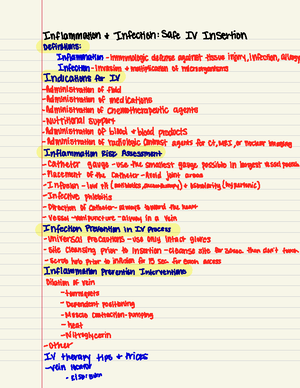 Inflammation + Infection: Safe IV Insertion
Definitions:
Inflammation - immunologic defense against tissue injury, infection, allergy
Infection - invasion + multiplication of microorganisms
Indications for IV
- Administration of fluid
- Administration of medications
- Administration of chemotherapeutic agents
- Nutritional support
- Administration of blood + blood products
- Administration of radiologic contrast agents for CT, MRI, or nuclear imaging
Inflammation Risk Assessment
- Catheter gauge - use the smallest gauge possible in largest vessel
- Placement of the catheter - Avoid joint areas
- Infusion - low pH (antibiotics, chemotherapy) + osmolarity (hypertonic)
- Infective phlebitis
- Direction of catheter - always toward the heart
- Vessel - venipuncture - always in a vein
Infection Prevention in IV Process
- Universal Precautions - use only intact gloves
- Site cleansing prior to insertion - cleanse site for 30sec then don't touch
- Scrub hub prior to infusion for 15 sec for each access
Inflammation Prevention Interventions
Dilation of vein
- tourniquets
- Dependent positioning
- Muscle contraction - pumping
- heat
- Nitroglycerin
- Other
IV therapy tips + tricks
- vein locator